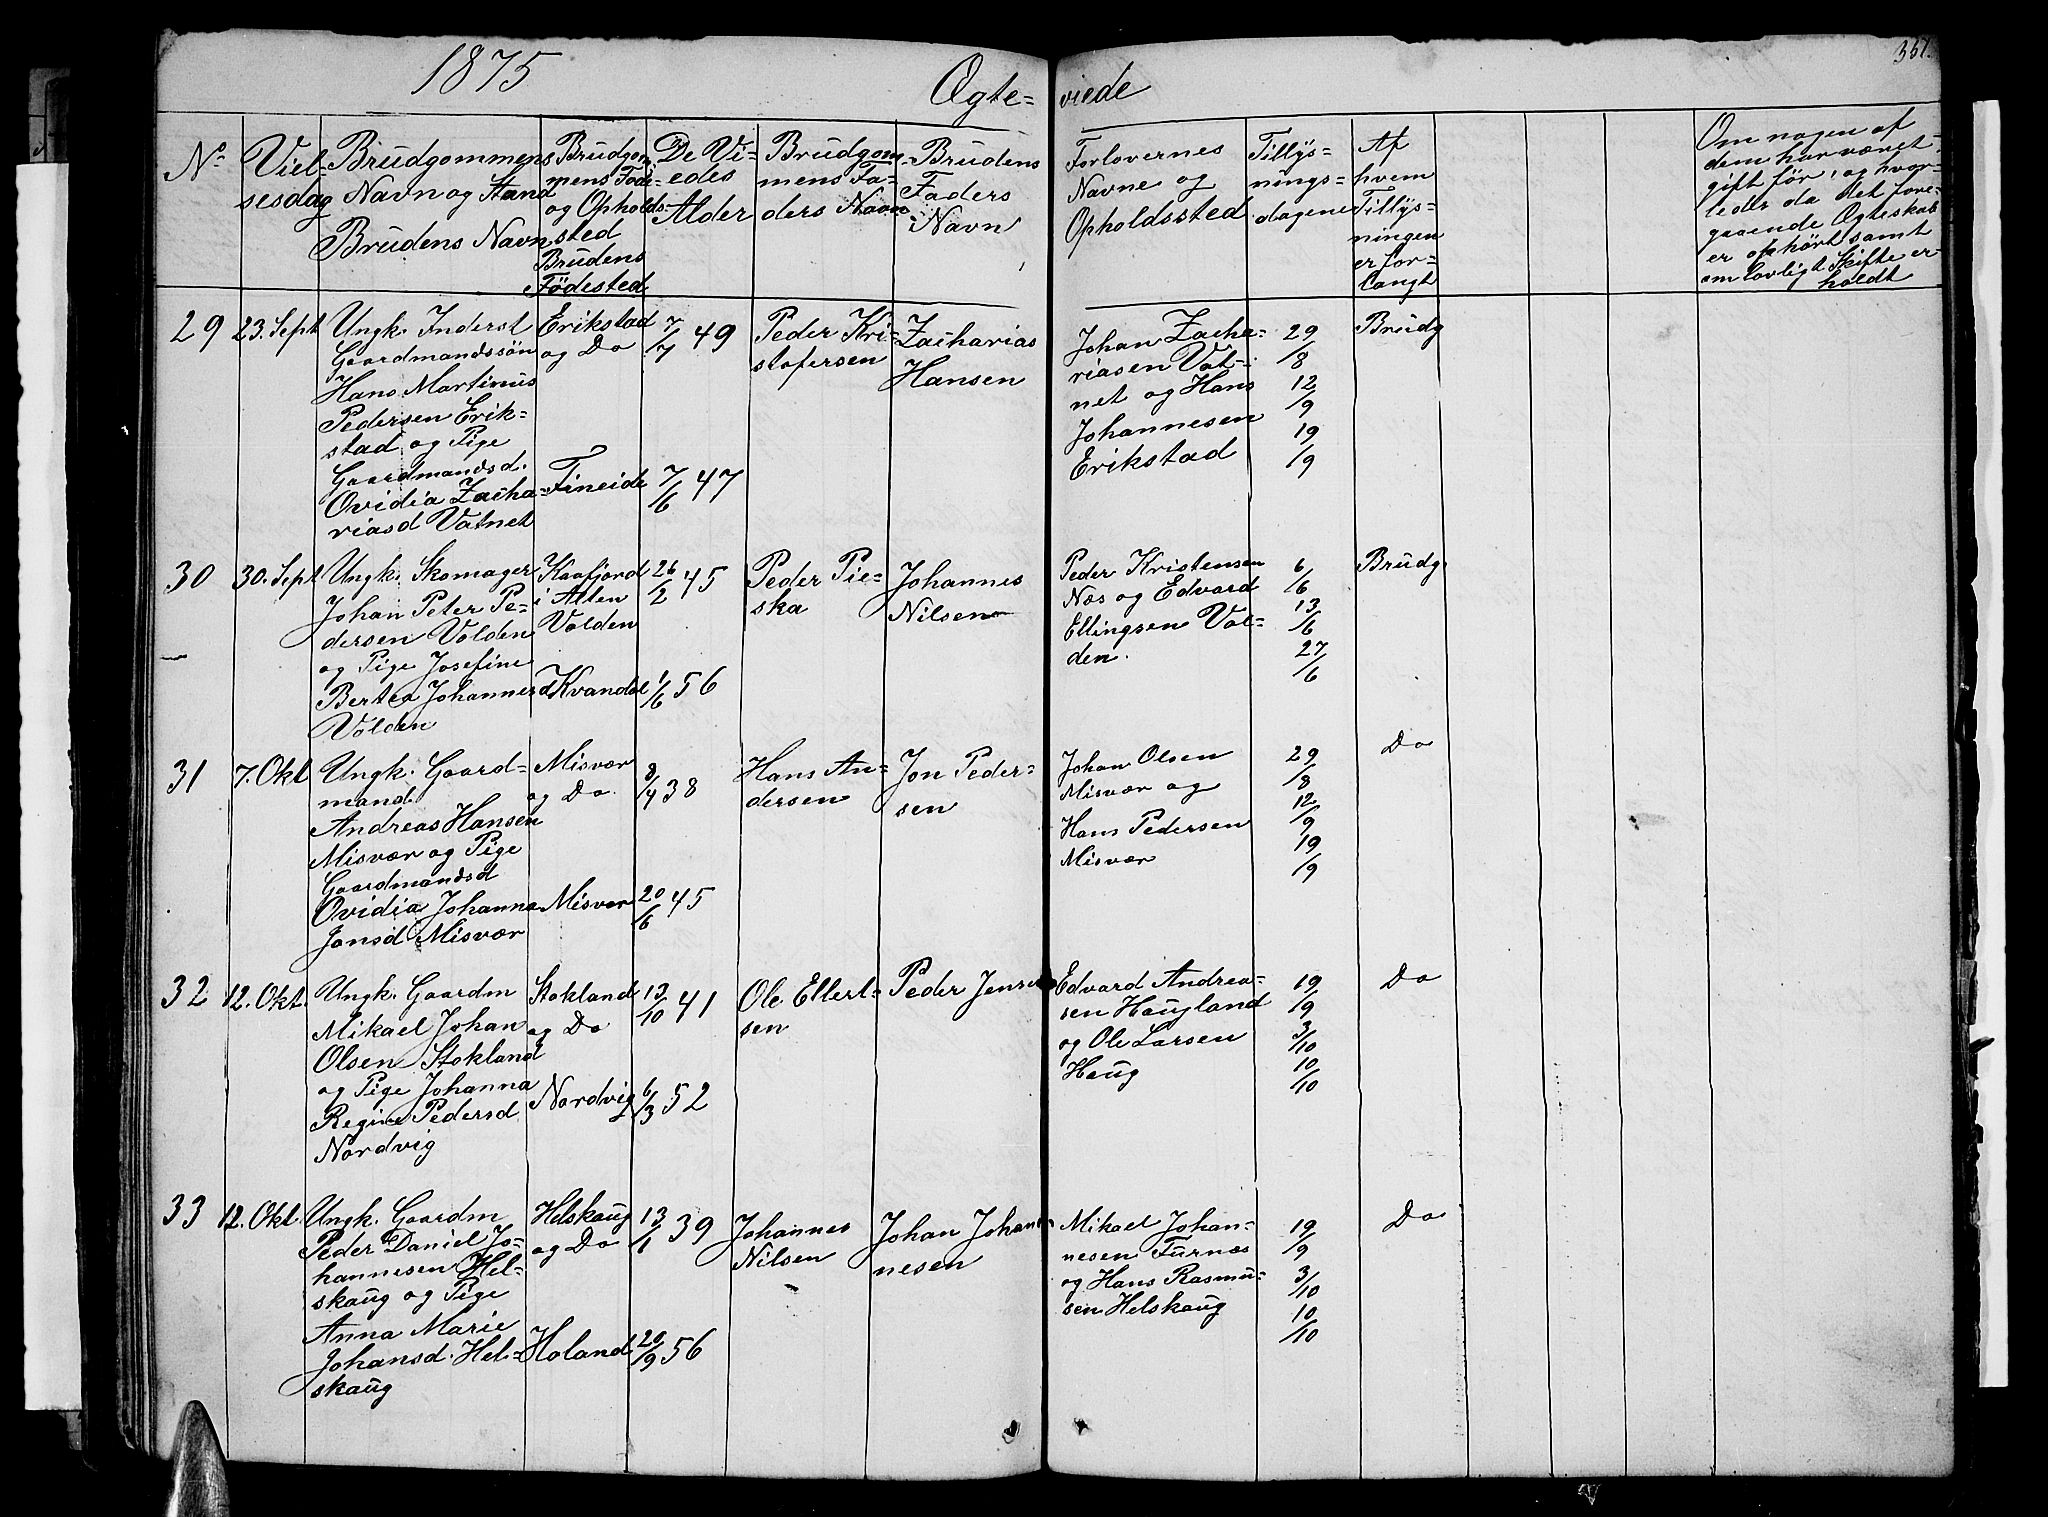 1875
Ægte=
viede
367.
No.
Viel-
sesdag
Brudgommens
Navn og Stand
Brudens Navn
Brudgom
mens Føde-
og Opholds-
sted
Brudens
Fødested
De Vi-
edes
Alder
Brudgom
mens Fa-
ders Navn
Brudens
Faders
Navn
Forlovernes
Navne og
Opholdssted
Tillys=
nings=
dagene
Af
hvem
Tillys=
ningen
er for=
langt
Om nogen af
dem har været
gift før, og hvor-
leder da det fore-
gaaende Ægteskab
er ophørt samt
om lovligt Skifte er
holdt
29
23. Sept
Ungk. Inderst
Gaardmandssøn
Hans Martinus
Pedersen Erik=
stad og Pige
Gaardmandsd.
Ovidia Zacha-
riasd Vatnet
Erikstad
og Do
Fineide
7/7 49
7/6 47
Peder Kri-
stofersen
Zacharias
Hansen
Johan Zacha-
riasen Vat-
net og Hans
Johannesen
Erikstad
29/8
12/9
19/9
Brudg
30
30. Sept
Ungk. Skomager
Johan Peter Pe-
dersen Volden
og Pige Josefine
Bertea Johannesd
Volden
Kaafjord
i Alten
Volden
Kvandal
26/2 45
1/6 56
Peder Pie-
ska
Johannes
Nilsen
Peder Kristensen
Næs og Edvard
Ellingsen Vol-
den.
6/6
13/6
27/6
Brudg.
31
7. Okt
Ungk. Gaard-
mand.
Andreas Hansen
Misvær og Pige
Gaardmandsd
Ovidia Johanna
Jonsd Misvær
Misvær
og Do.
Misvær
8/4 38
20/6 45
Hans An-
dersen
Jon Peder-
sen
Johan Olsen
Misvær og
Hans Pedersen
Misvær
29/8
12/9
19/9
Do
32
12. Okt.
Ungk. Gaardm
Mikael Johan
Olsen Stokland
og Pige Johanna
Regine Pedersd
Nordvig
Stokland
og Do
Nordvig
13/10 41
6/3 52
Ole Ellert-
sen
Peder Jensen
Edvard Andrea-
sen Haugland
og Ole Larsen
Haug
19/9
3/10
10/10
Do
33
12. Okt
Ungk. Gaardm
Peder Daniel Jo-
hannesen Hel-
skaug og Pige
Anna Marie
Johansd. Hel-
skaug
Helskaug
og Do
Holand
13/1 39
20/9 56
Johannes
Nilsen
Johan Johan-
nesen
Mikael Johan-
nesen Furnæs
og Hans Rasmu-
sen Helskaug
19/9
3/10
10/10
Do